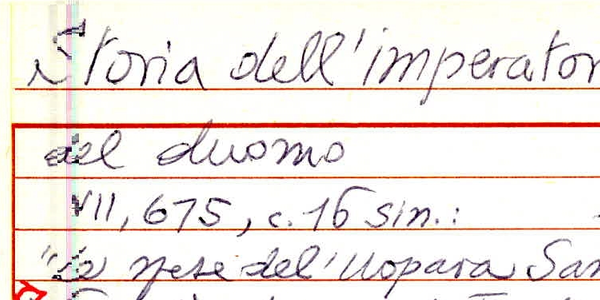 Storia dell'imperator
del duomo
VII, 675, c. 16 sin.:
"La spese del' Uopara San